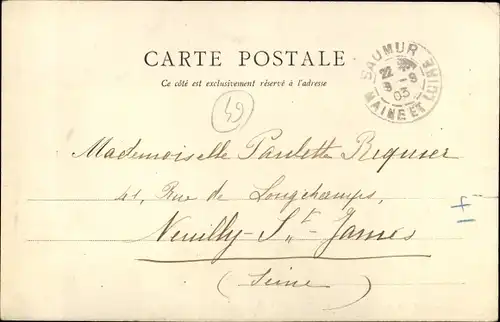 CARTE POSTALE
Ce côté est exclusivement réservé à l'adresse
SAUMUR
22 9 - 9
03
MAINE ET LOIRE
49
Mademoiselle Paulette Requier
41, Rue de Longchamps,
Neuilly-St-James
(Seine)